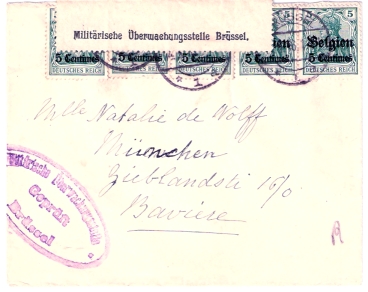 Militärische Überwachungsstelle Brüssel.
5 Centimes 5 Centimes 5 Centimes Belgien 5 Centimes Belgien 5 Centimes
DEUTSCHES REICH DEUTSCHES REICH DEUTSCHES REICH DEUTSCHES REICH DEUTSCHES REICH
5
Mlle Natalie de Wolff
München
Bavière
Militärische Überwachungsstelle
Geprüft
Brüssel